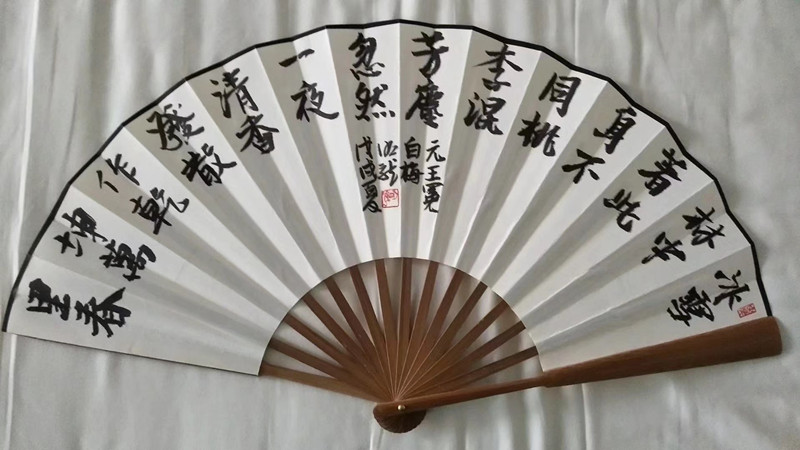 冰雪
林中
著此
身不
同桃
李混
芳塵
忽然
一夜
清香
發散
作乾
坤萬
里春
元王冕
白梅
戊戌夏